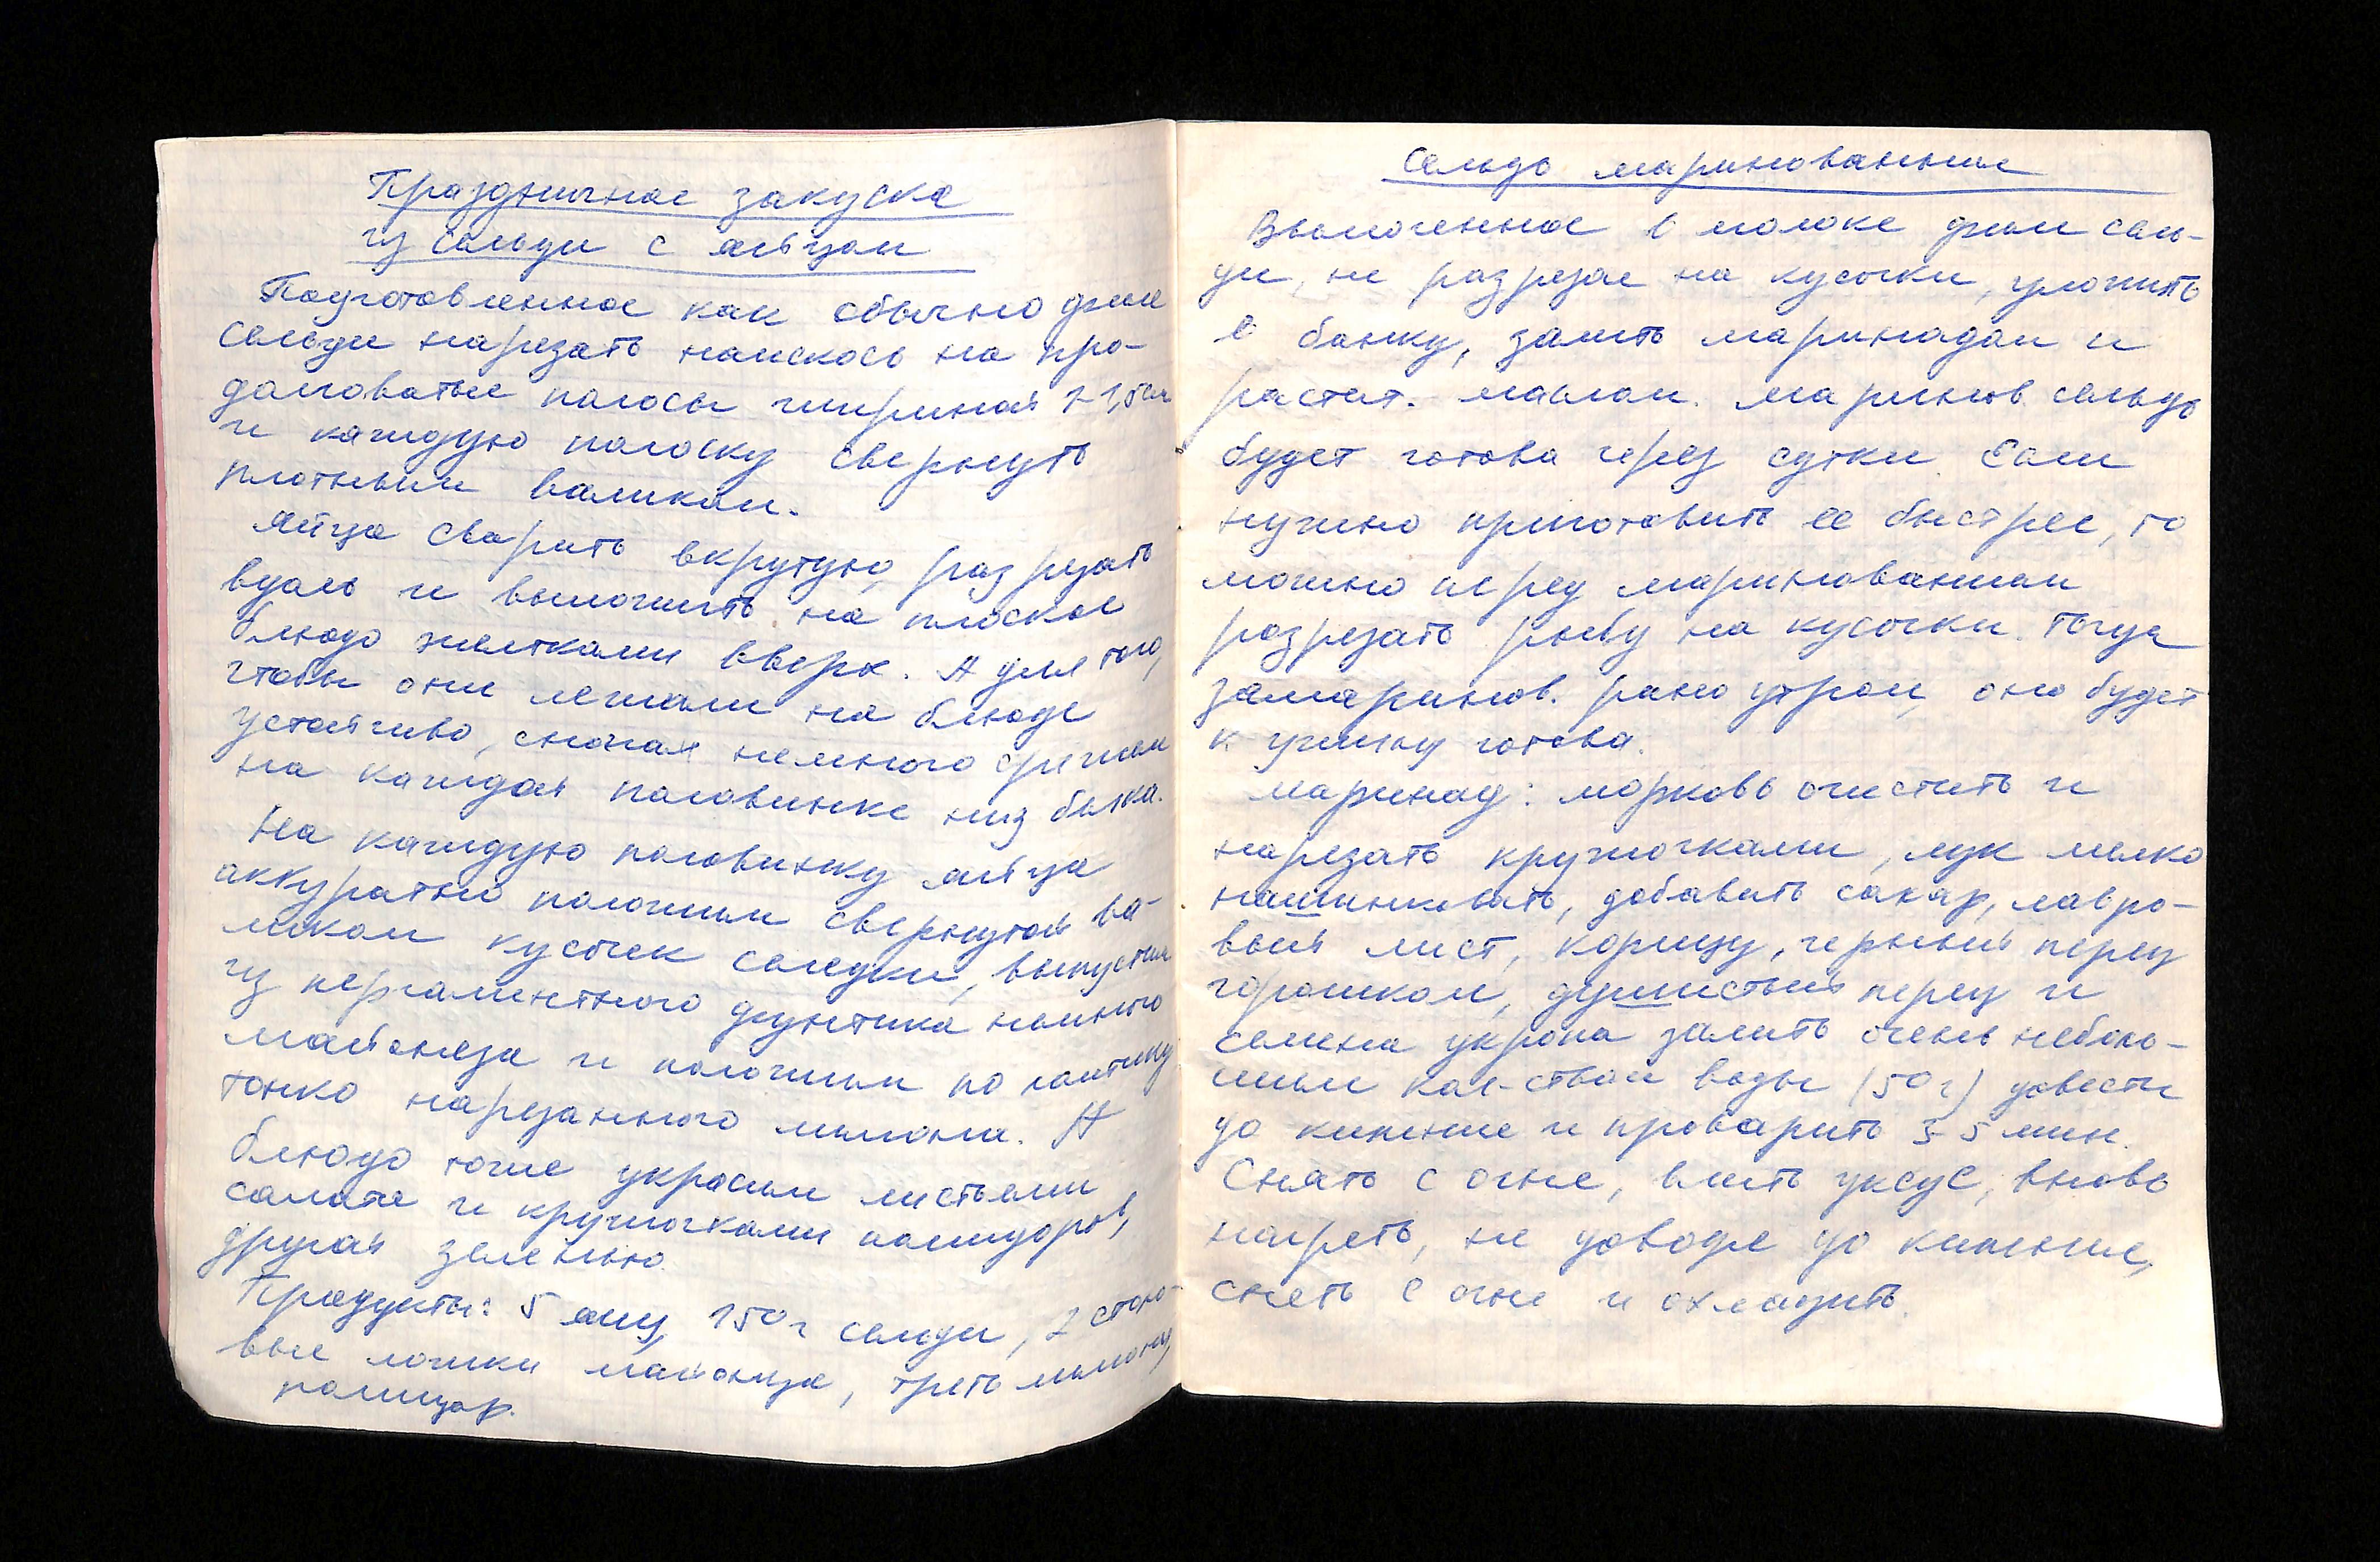 Праздничная закуска
из сельди с яйцом
Подготовленное как обычно филе
сельди нарезать наискось на про-
долговатые полосы шириной 1-1,5см
и каждую полоску свернуть
плотным валиком.
Яйца сварить вкрутую, разрезать
вдоль и выложить на плоское
блюдо желтками вверх. А для того,
чтобы они лежали на блюде
устойчиво, сначала немного срежем
на каждой половинке низ белка.
На каждую половинку яйца
аккуратно положим свернутой ва-
ликом кусочек селедки, выпустим
из пергаментного фунтика немного
майонеза и положим по ломтику
тонко нарезанного лимона. А
блюдо тоже украсим листьями
салата и кружочками помидоров,
другой зеленью.
Продукты: 5 яиц, 150 г сельди, 2 столо-
вые ложки майонеза, треть лимона,
помидор.
Сельдь маринованная
Вымоченное в молоке филе сель-
ди, не разрезая на кусочки, уложить
в банку, залить маринадом и
растит. маслом. Маринов. сельдь
будет готова через сутки. Если
нужно приготовить ее быстрее, то
можно перед маринованием
разрезать рыбу на кусочки. Тогда
замаринов. рано утром, она будет
к ужину готова.
Маринад: морковь очистить и
нарезать кружочками, лук мелко
нашинковать, добавить сахар, лавро-
вый лист, корицу, черный перец
горошком, душистый перец и
семена укропа залить очень неболь-
шим кол-ством воды (50 г) довести
до кипения и проварить 3-5 мин.
Снять с огня, влить уксус, вновь
нагреть, не доводя до кипения,
снять с огня и охладить.